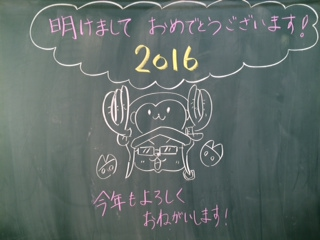 明けまして おめでとうございます!
2016
今年もよろしく
おねがいします!